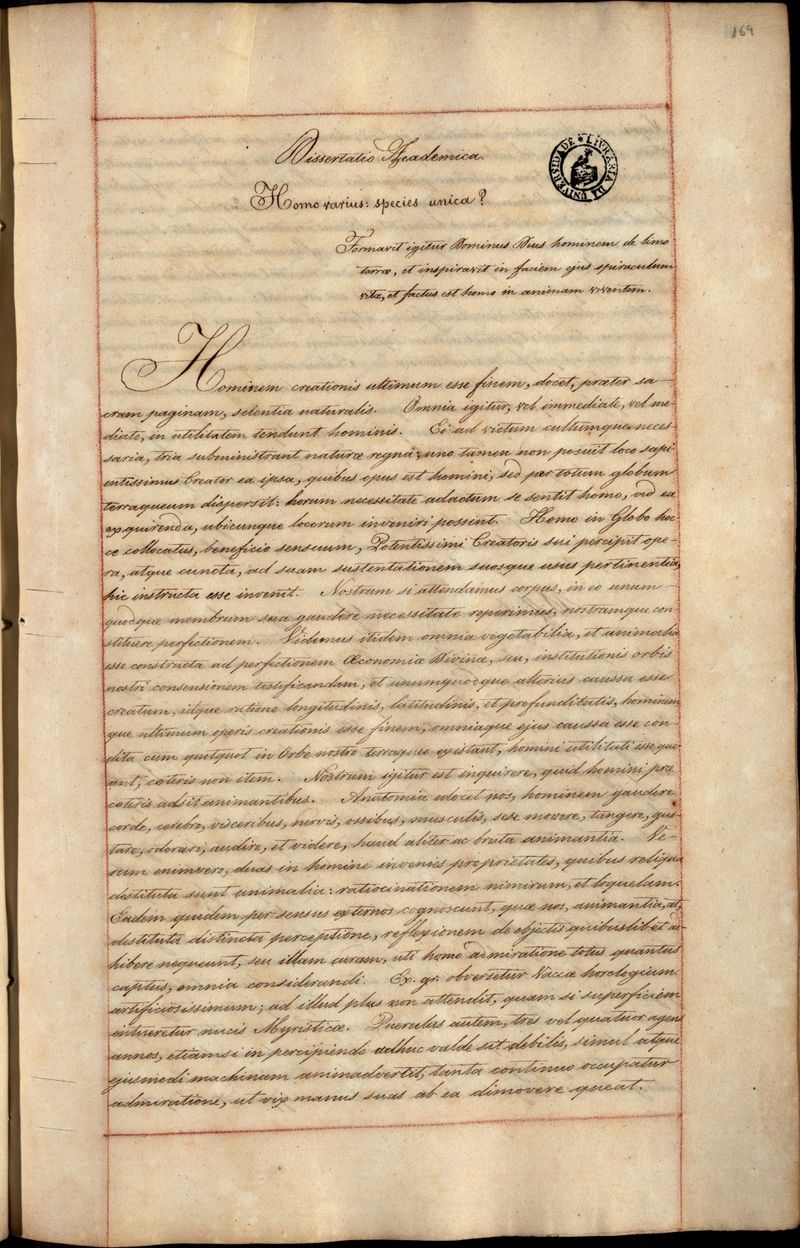 169
Dissertatio Academica.
LIVRARIA DA UNIVERSIDADE
Homo varius: species unica?
Formavit igitur Dominus Deus hominem de limo
terræ, et inspiravit in faciem ejus spiraculum
vitæ, et factus est homo in animam viventem.
Hominem creationis ultimum esse finem, docet, præter sa-
cram paginam, scientia naturalis. Omnia igitur, vel immediate, vel me-
diate, in utilitatem tendunt hominis. Ei ad victum cultumque neces-
saria, tria subministrant naturæ regna; uno tamen non posuit loco sapi-
entissimus Creator ea ipsa, quibus opus est homini, sed per totum globum
terraqueum dispersit: horum necessitate adactum se sentit homo, ad ea
exquirenda, ubicunque locorum inveniri possint. Homo in Globo hoc-
ce collocatus, beneficio sensuum, Potentissimi Creatoris sui percipit ope-
ra, atque cuncta, ad suam sustentationem suosque usus pertinentia,
hic instructa esse invenit. Nostrum si attendamus corpus, in eo unum
quodque membrum sua gaudere necessitate reperimus, nostramque con
stituere perfectionem. Videmus itidem omnia vegetabilia, et animalia
esse constructa ad perfectionem Œconomiæ Divinæ, seu, institutionis orbis
nostri consensionem testificandam, et unumquodque alterius caussa esse
creatum, idque ratione longitudinis, latitudinis, et profunditatis, hominem
que ultimum operis creationis esse finem, omniaque ejus caussa esse con-
dita cum quotquot in Orbe nostro terraqueo existant, homini utilitati esse que
ant, cæteris non item. Nostrum igitur est inquirere, quid homini præ
cæteris adsit animantibus. Anatomia edocet nos, hominem gaudere
corde, cerebro, visceribus, nervis, ossibus, musculis, sese movere, tangere, gus-
tare, odorari, audire, et videre, haud aliter ac bruta animantia. Ve-
rum enimvero, duas in homine invenies proprietates, quibus reliqua
destituta sunt animalia: ratiocinationem nimirum, et loquelam.
Eadem quidem per sensus externos cognoscunt, quæ nos, animantia, at,
destituta distincta perceptione, reflexionem de objectis quibuslibet ad-
hibere nequeunt, seu illam curam, uti homo admiratione totus quantus
captus, omnia considerandi. Ex. gr. obversetur Vaccæ horologium
artificiosissimum; ad illud plus non attendit, quam si superficiem
intueretur nucis Myristicæ. Puerulus autem, tres vel quatuor agens
annos, etiamsi in percipiendo adhuc valde sit debilis, simul atque
ejusmodi machinam animadvertit, tanta continuo occupatur
admiratione, ut vix manus suas ab ea dimovere queat.